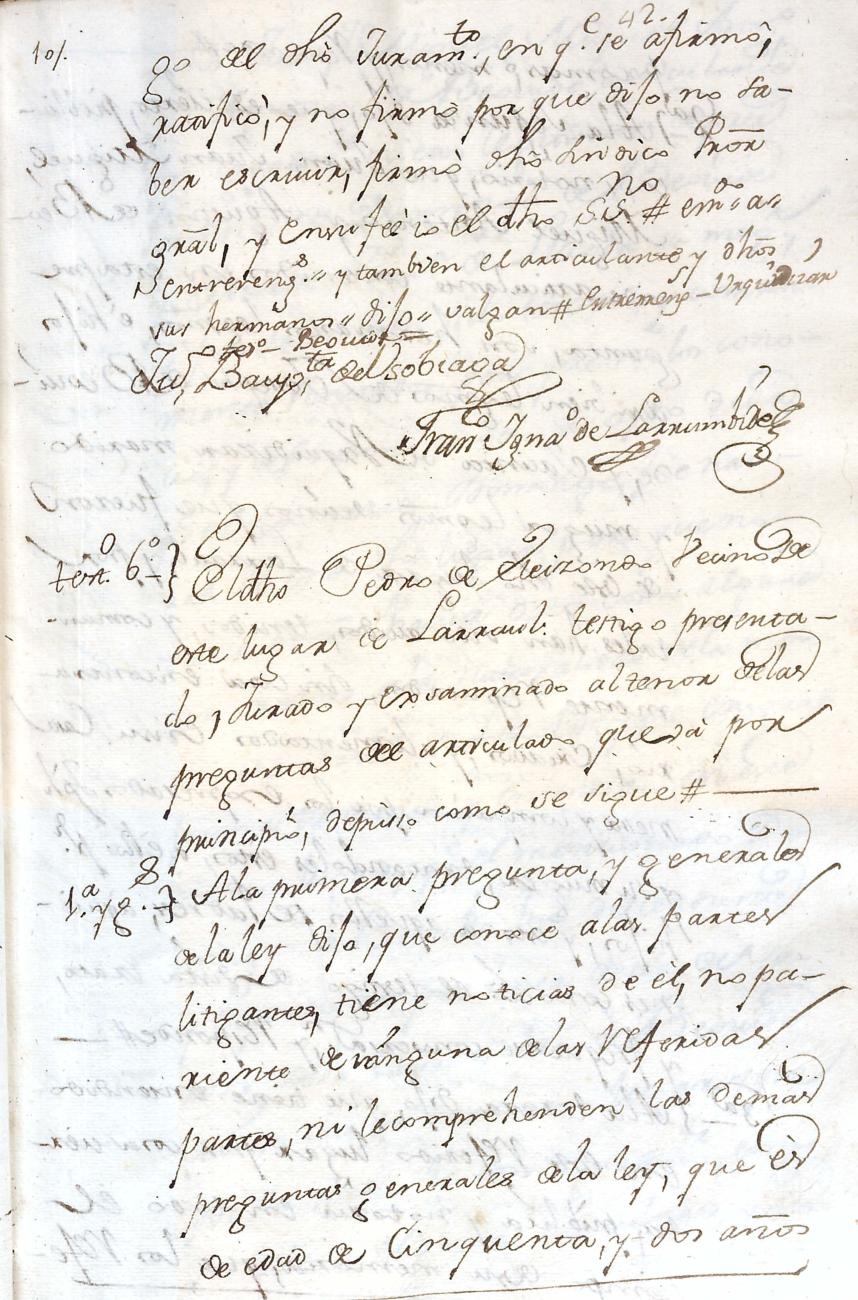 e 42.
101.
go del dho Juramto., en q.e se afirmò,
ratificò, y no firmò por que dijo no sa-
ber escrivir, firmò dho sindico Pror
gral, y en su feè io el dho SSno # emdo "a"
entrerengs." y tambien el articulante y dhos
sus hermanos" dijo" valgan # Entrerengs - Urquidizar
testo - Beovide
Jun Baupta. de Usobiaga
Franco Ignao de Larrumbide
test.o 6o-} El dho Pedro de Leizondo Vecino de
este lugar de Larraul. testigo presenta-
do, Jurado y Exsaminado al tenor delas
preguntas del articulado que và por
principio, depuso como se sigue #
1.a y g.s -} A la primera pregunta, y generales
dela ley dijo, que conoce alas partes
litigantes, tiene noticias de èl, no pa-
riente de ninguna delas Referidas
partes, ni le comprehenden las demàs
preguntas generales dela ley, que ès
de edad de Cinquenta, y dos años